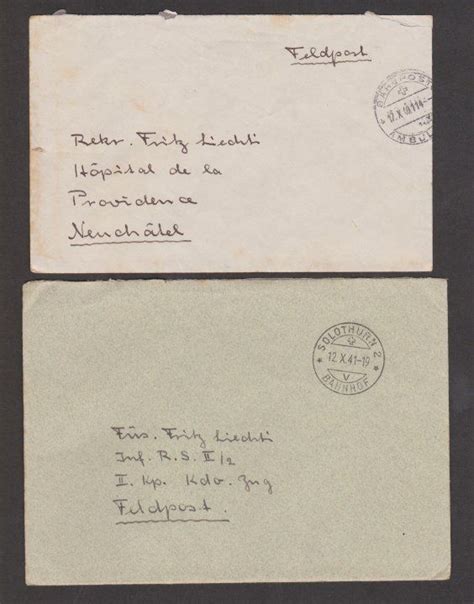 Feldpost
BAHNPOST
12.X.41.14-
AMBUL
Rekr. Fritz Liechti
Hôpital de la
Providence
Neuchâtel
SOLOTHURN 2
12.X.41-19
V
BAHNHOF
Füs. Fritz Liechti
Inf. R.S. II/2
II. Kp. Kdo. Zug
Feldpost.